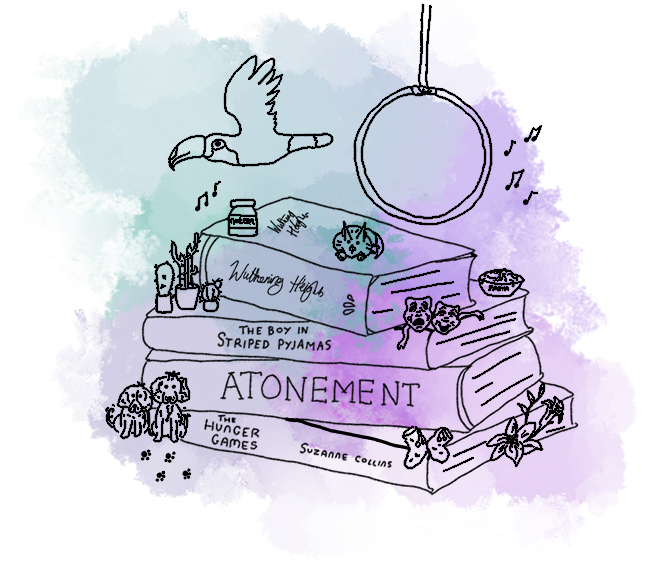 Nutella
Wuthering
Heights
Wuthering Heights
THE BOY IN
STRIPED PYJAMAS
ATONEMENT
THE
HUNGER
GAMES
SUZANNE COLLINS